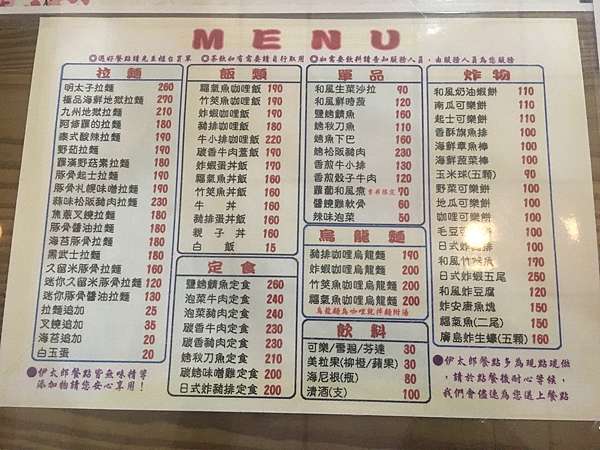 MENU
●選好餐點請先至櫃台買單 ●茶飲如有需要請自行取用 ●如需要飲料請告知服務人員，由服務人員為您服務
拉麵
明太子拉麵 260
極品海鮮地獄拉麵 290
九州地獄拉麵 210
阿修羅的拉麵 180
泰式酸辣拉麵 190
野菇拉麵 190
羅漢野菇素拉麵 180
豚骨起士拉麵 190
豚骨札幌味噌拉麵 190
蒜味松阪豬肉拉麵 230
焦蔥叉燒拉麵 180
豚骨醬油拉麵 180
海苔豚骨拉麵 180
黑武士拉麵 190
久留米豚骨拉麵 160
迷你久留米豚骨拉麵 120
迷你豚骨醬油拉麵 130
拉麵追加 25
叉燒追加 35
海苔追加 20
白玉蛋 20
●伊太郎餐點皆無味精等
添加物請您安心享用！
飯類
福氣魚咖哩飯 190
竹筴魚咖哩飯 190
炸蝦咖哩飯 190
豬排咖哩飯 180
牛小排咖哩飯 220
碳香牛肉蓋飯 190
炸蝦蛋丼飯 190
福氣魚丼飯 190
竹筴魚丼飯 190
牛丼 180
豬排蛋丼飯 190
親子丼 190
白飯 15
定食
鹽烤鯖魚定食 260
泡菜牛肉定食 200
泡菜豬肉定食 240
碳香牛肉定食 200
碳香豬肉定食 230
烤秋刀魚定食 210
碳烤味噌雞定食 200
日式炸豬排定食 200
單品
和風生菜沙拉 90
和風鮮時蔬 120
鹽烤鯖魚 150
烤秋刀魚 110
烤魚下巴 90
烤松阪豬肉 230
香煎牛小排 130
香煎骰子牛肉 120
蘿蔔和風煮 素料限定 70
醬燒雞軟骨 60
辣味泡菜 50
烏龍麵
豬排咖哩烏龍麵 190
炸蝦咖哩烏龍麵 200
竹筴魚咖哩烏龍麵 200
福氣魚咖哩烏龍麵 200
烏龍麵為咖哩乾拌麵附湯
飲料
可樂/雪碧/芬達 30
美粒果(柳橙/蘋果) 30
海尼根(瓶) 80
清酒(支) 100
炸物
和風奶油蝦餅 110
南瓜可樂餅 110
起士可樂餅 110
香酥旗魚排 100
海鮮章魚棒 100
海鮮蔬菜棒 100
玉米球(五顆) 90
野菜可樂餅 100
地瓜可樂餅 100
咖哩可樂餅 100
毛豆 100
日式炸豬排 100
和風竹筴魚 190
日式炸蝦五尾 250
和風炸豆腐 120
炸安康魚塊 150
福氣魚(二尾) 150
廣島炸生蠔(五顆) 160
●伊太郎餐點多為現點現做，
請於點餐後耐心等候，
我們會儘速為您送上餐點